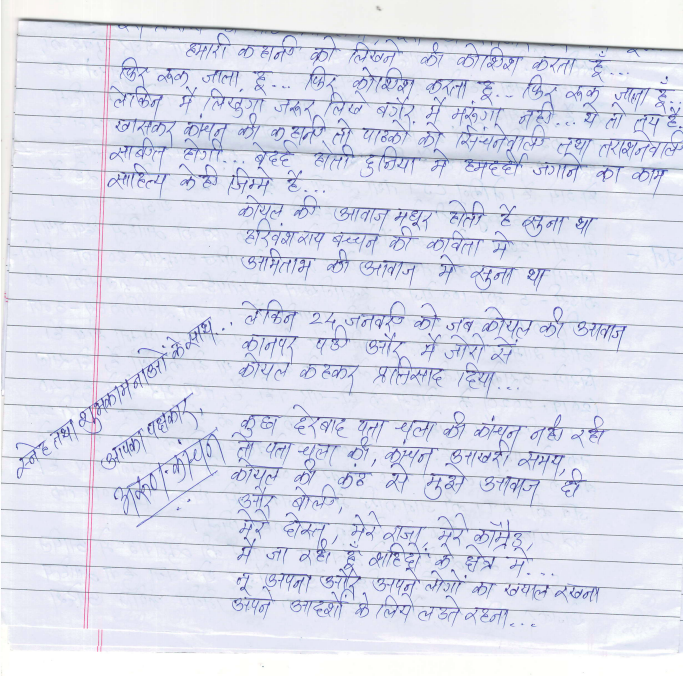 हमारी कहानी को लिखने की कोशिश करता हूँ...
फिर रूक जाता हूँ... फिर कोशिश करता हूँ... फिर रूक जाता हूँ...
लेकिन मैं लिखुंगा जरूर लिखे बगैर मैं मरूंगा नही... ये तो तय है
खासकर कांचन की कहानी तो पाठको को सिंचनेवाली तथा तराशनेवाली
साबीत होगी... बेदर्द होती दुनिया मे हमदर्दी जगाने का काम
साहित्य के ही जिम्मे है...
कोयल की आवाज मधूर होती है सुना था
हरिवंशराय बच्चन की कविता मे
अमिताभ की आवाज मे सुना था
लेकिन 24 जनवरी को जब कोयल की आवाज
कानपर पडी और मैं जोरो से
कोयल कहकर प्रतिसाद दिया...
कुछ देरबाद पता चला की कांचन नही रही
तो पता चला की, कांचन आखरी समय,
कोयल की कंठ से मुझे आवाज दी
और बोली,
मेरे दोस्त, मेरे राजा, मेरे कॉम्रेड,
मैं जा रही हूँ शहिदों के क्षेत्र में...
तू अपना और अपने लोगों का खयाल रखना
अपने आदर्शो के लिये लडते रहना...
स्नेह तथा शुभकामनाओं के साथ...
आपका
अरूण-कांचन